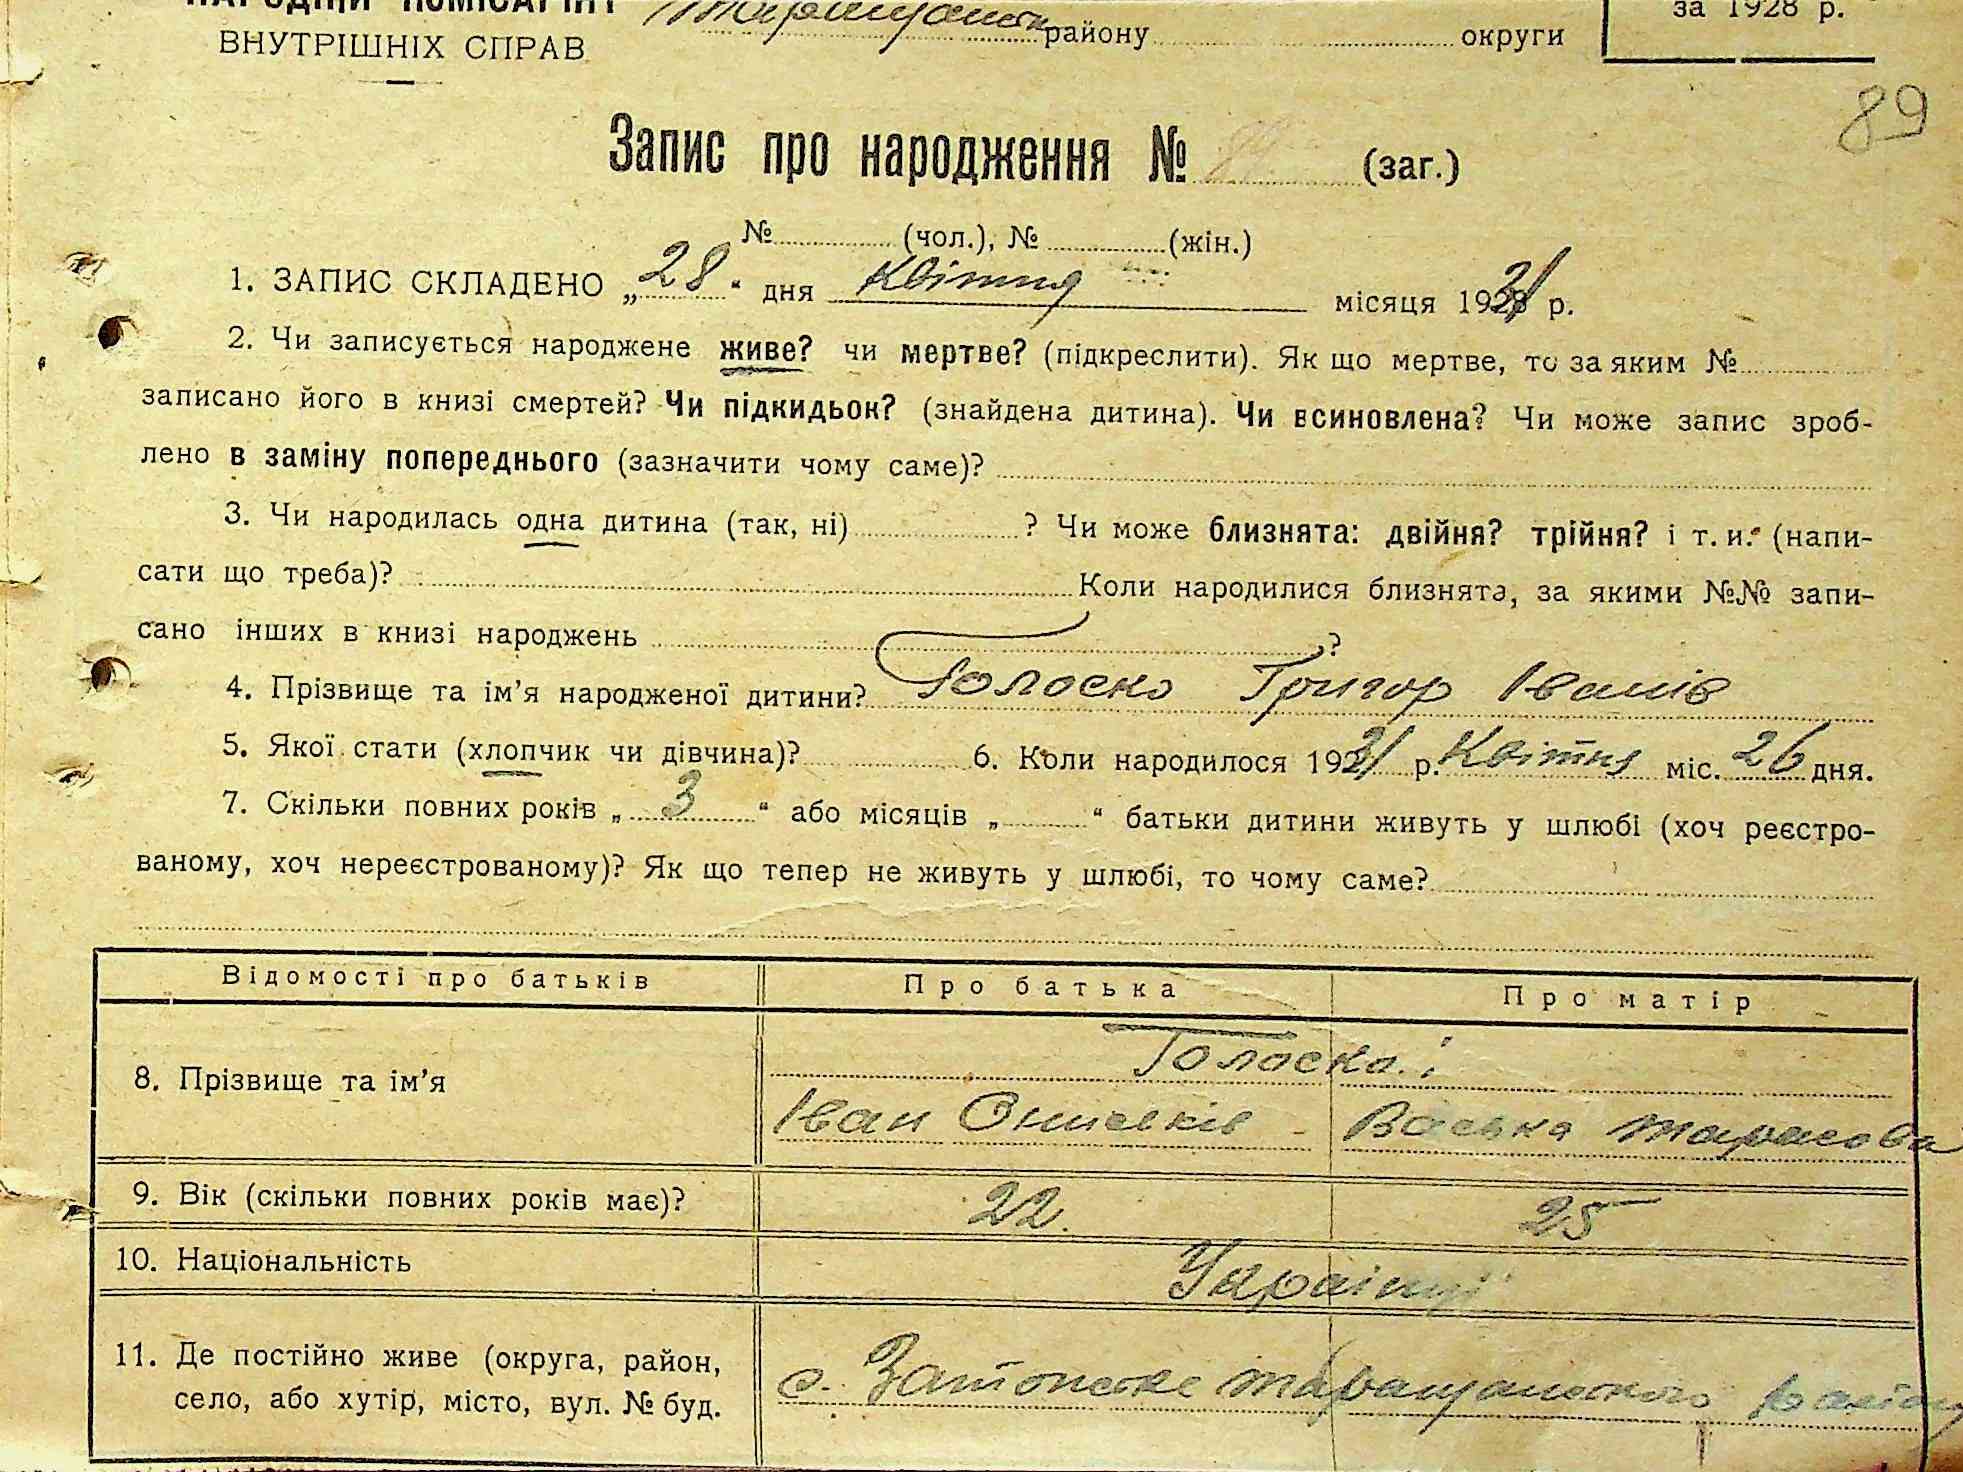 НАРОДНІЙ КОМІСАРІЯТ
ВНУТРІШНІХ СПРАВ
району округи
за 1928 р.
89
Запис про народження № 89 (заг.)
№ (чол.), № (жін.)
1. ЗАПИС СКЛАДЕНО „28“ дня Квітня місяця 1931 р.
2. Чи записується народжене живе? чи мертве? (підкреслити). Як що мертве, то за яким №
записано його в книзі смертей? Чи підкидьок? (знайдена дитина). Чи всиновлена? Чи може запис зроб-
лено в заміну попереднього (зазначити чому саме)?
3. Чи народилась одна дитина (так, ні) ? Чи може близнята: двійня? трійня? і т. и. (напи-
сати що треба)? Коли народилися близнята, за якими №№ запи-
сано інших в книзі народжень ?
4. Прізвище та ім’я народженої дитини? Голоско Григор Іванів
5. Якої стати (хлопчик чи дівчина)? 6. Коли народилося 1931 р. Квітня міс. 26 дня.
7. Скільки повних років „3“ або місяців „ “ батьки дитини живуть у шлюбі (хоч реєстро-
ваному, хоч нереєстрованому)? Як що тепер не живуть у шлюбі, то чому саме?
Відомості про батьків Про батька Про матір
8. Прізвище та ім’я Голоска і
Іван Васька Тарасова
9. Вік (скільки повних років має)? 22. 25
10. Національність Українці
11. Де постійно живе (округа, район,
село, або хутір, місто, вул. № буд.
с. Таращанського району